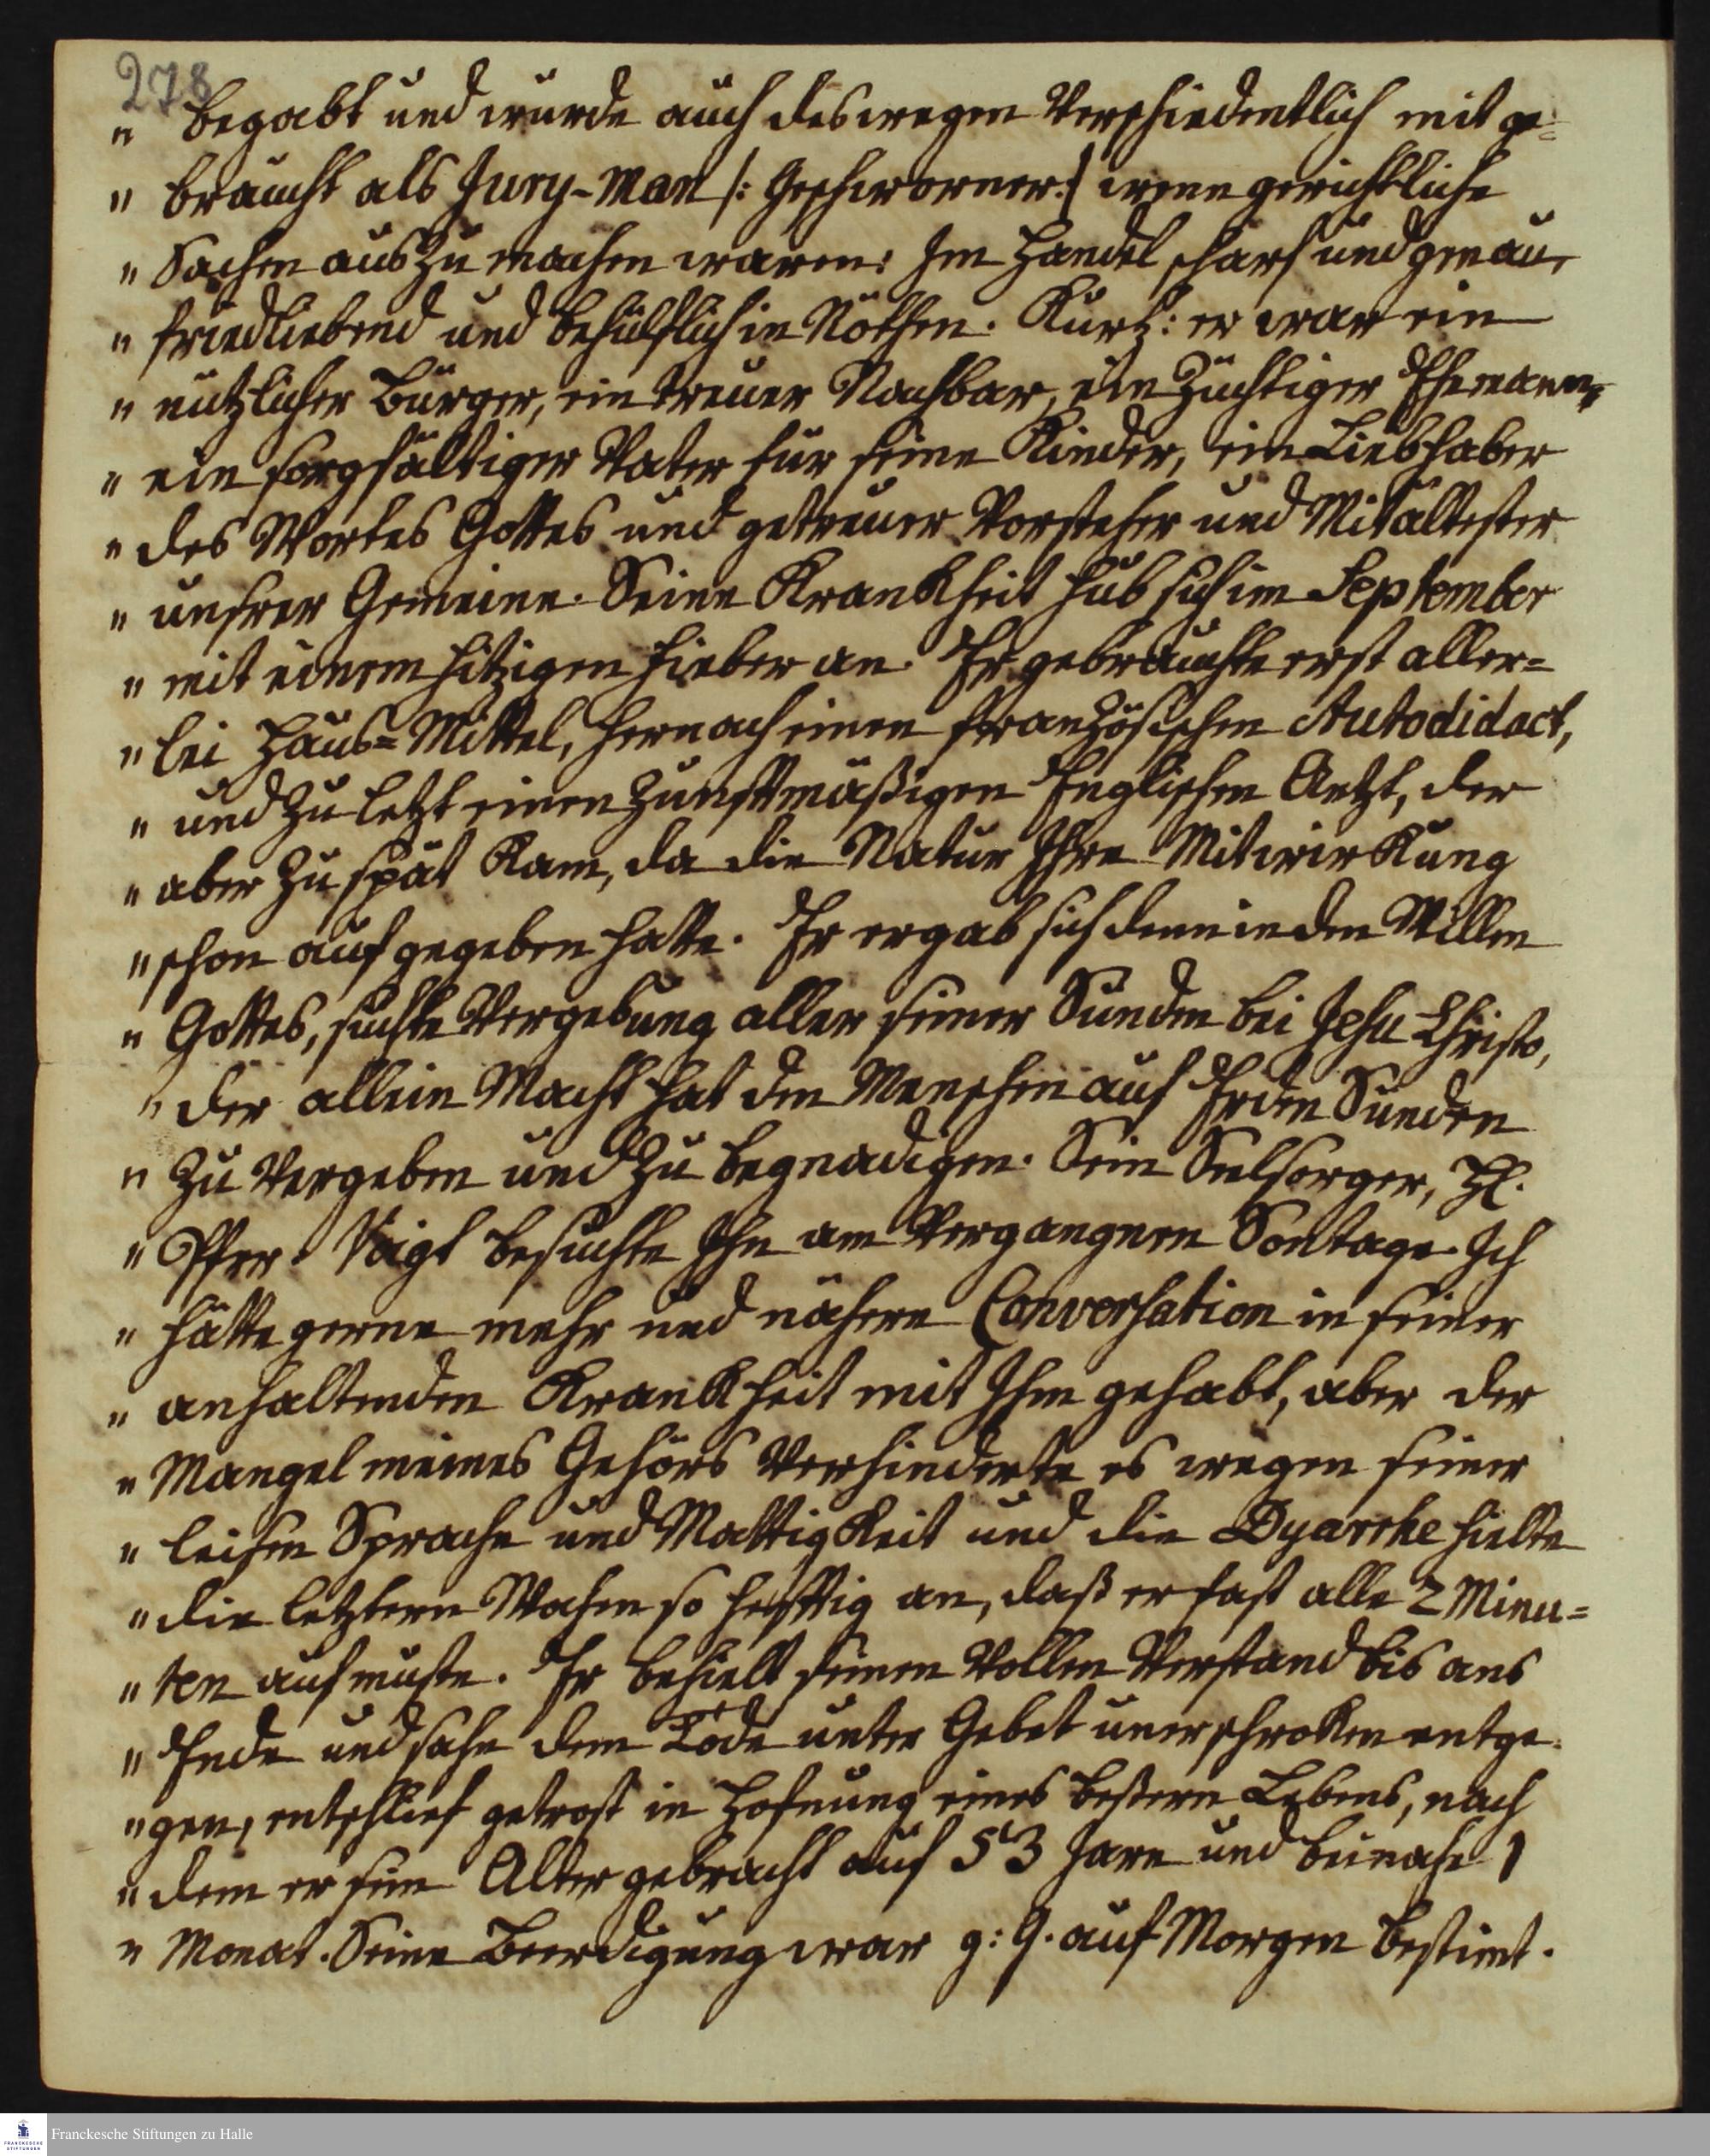 278
" begabt und wurde auch deswegen verschiedentlich mit ge-
" braucht als Jury-Man /: Geschworner:/ wenn gerichtliche
" Sachen auszumachen waren: Im Handel scharf und genau,
" friedliebend und behülflich in Nöthen. Kurtz: er war ein
" nützlicher Bürger, ein treuer Nachbar, ein züchtiger Ehemann,
" ein sorgfältiger Vater für seine Kinder, ein Liebhaber
" des Wortes Gottes und getreuer Vorsteher und Mitältester
" unsrer Gemeine. Seine Krankheit hub sich im September
" mit einem hitzigen Fieber an. Er gebrauchte erst aller=
" lei Haus=Mittel, hernach einen französischen Autodidact,
" und zu letzt einen zunftmäßigen Englischen Artzt, der
" aber zu spät kam, da die Natur Ihre Mitwirkung
" schon aufgegeben hatte. Er ergab sich denn in den Willen
" Gottes, suchte Vergebung aller seiner Sünden bei Jesu Christo,
" der allein Macht hat den Menschen auf Erden Sünden
" zu vergeben und zu begnadigen. Sein Selsorger, H.
" Pfrr. Voigt besuchte Ihn am vergangnen Sontage. Ich
" hätte gerne mehr und nähere Conversation in seiner
" anhaltenden Krankheit mit Ihm gehabt, aber der
" Mangel meines Gehörs verhinderte es wegen seiner
" leisen Sprache und Mattigkeit und die Dyarrhe hielte
" die letztern Wochen so heftig an, daß er fast alle 2 Minu=
" ten auf muste. Er behielt seinen vollen Verstand bis ans
" Ende und sahe dem Tode unter Gebet unerschroken entge-
" gen, entschlief getrost in Hofnung eines beßern Lebens, nach
" dem er sein Alter gebracht auf 53 Jare und beinahe 1
" Monat. Seine Beerdigung war g: G. auf Morgen bestimt.
Franckesche Stiftungen zu Halle